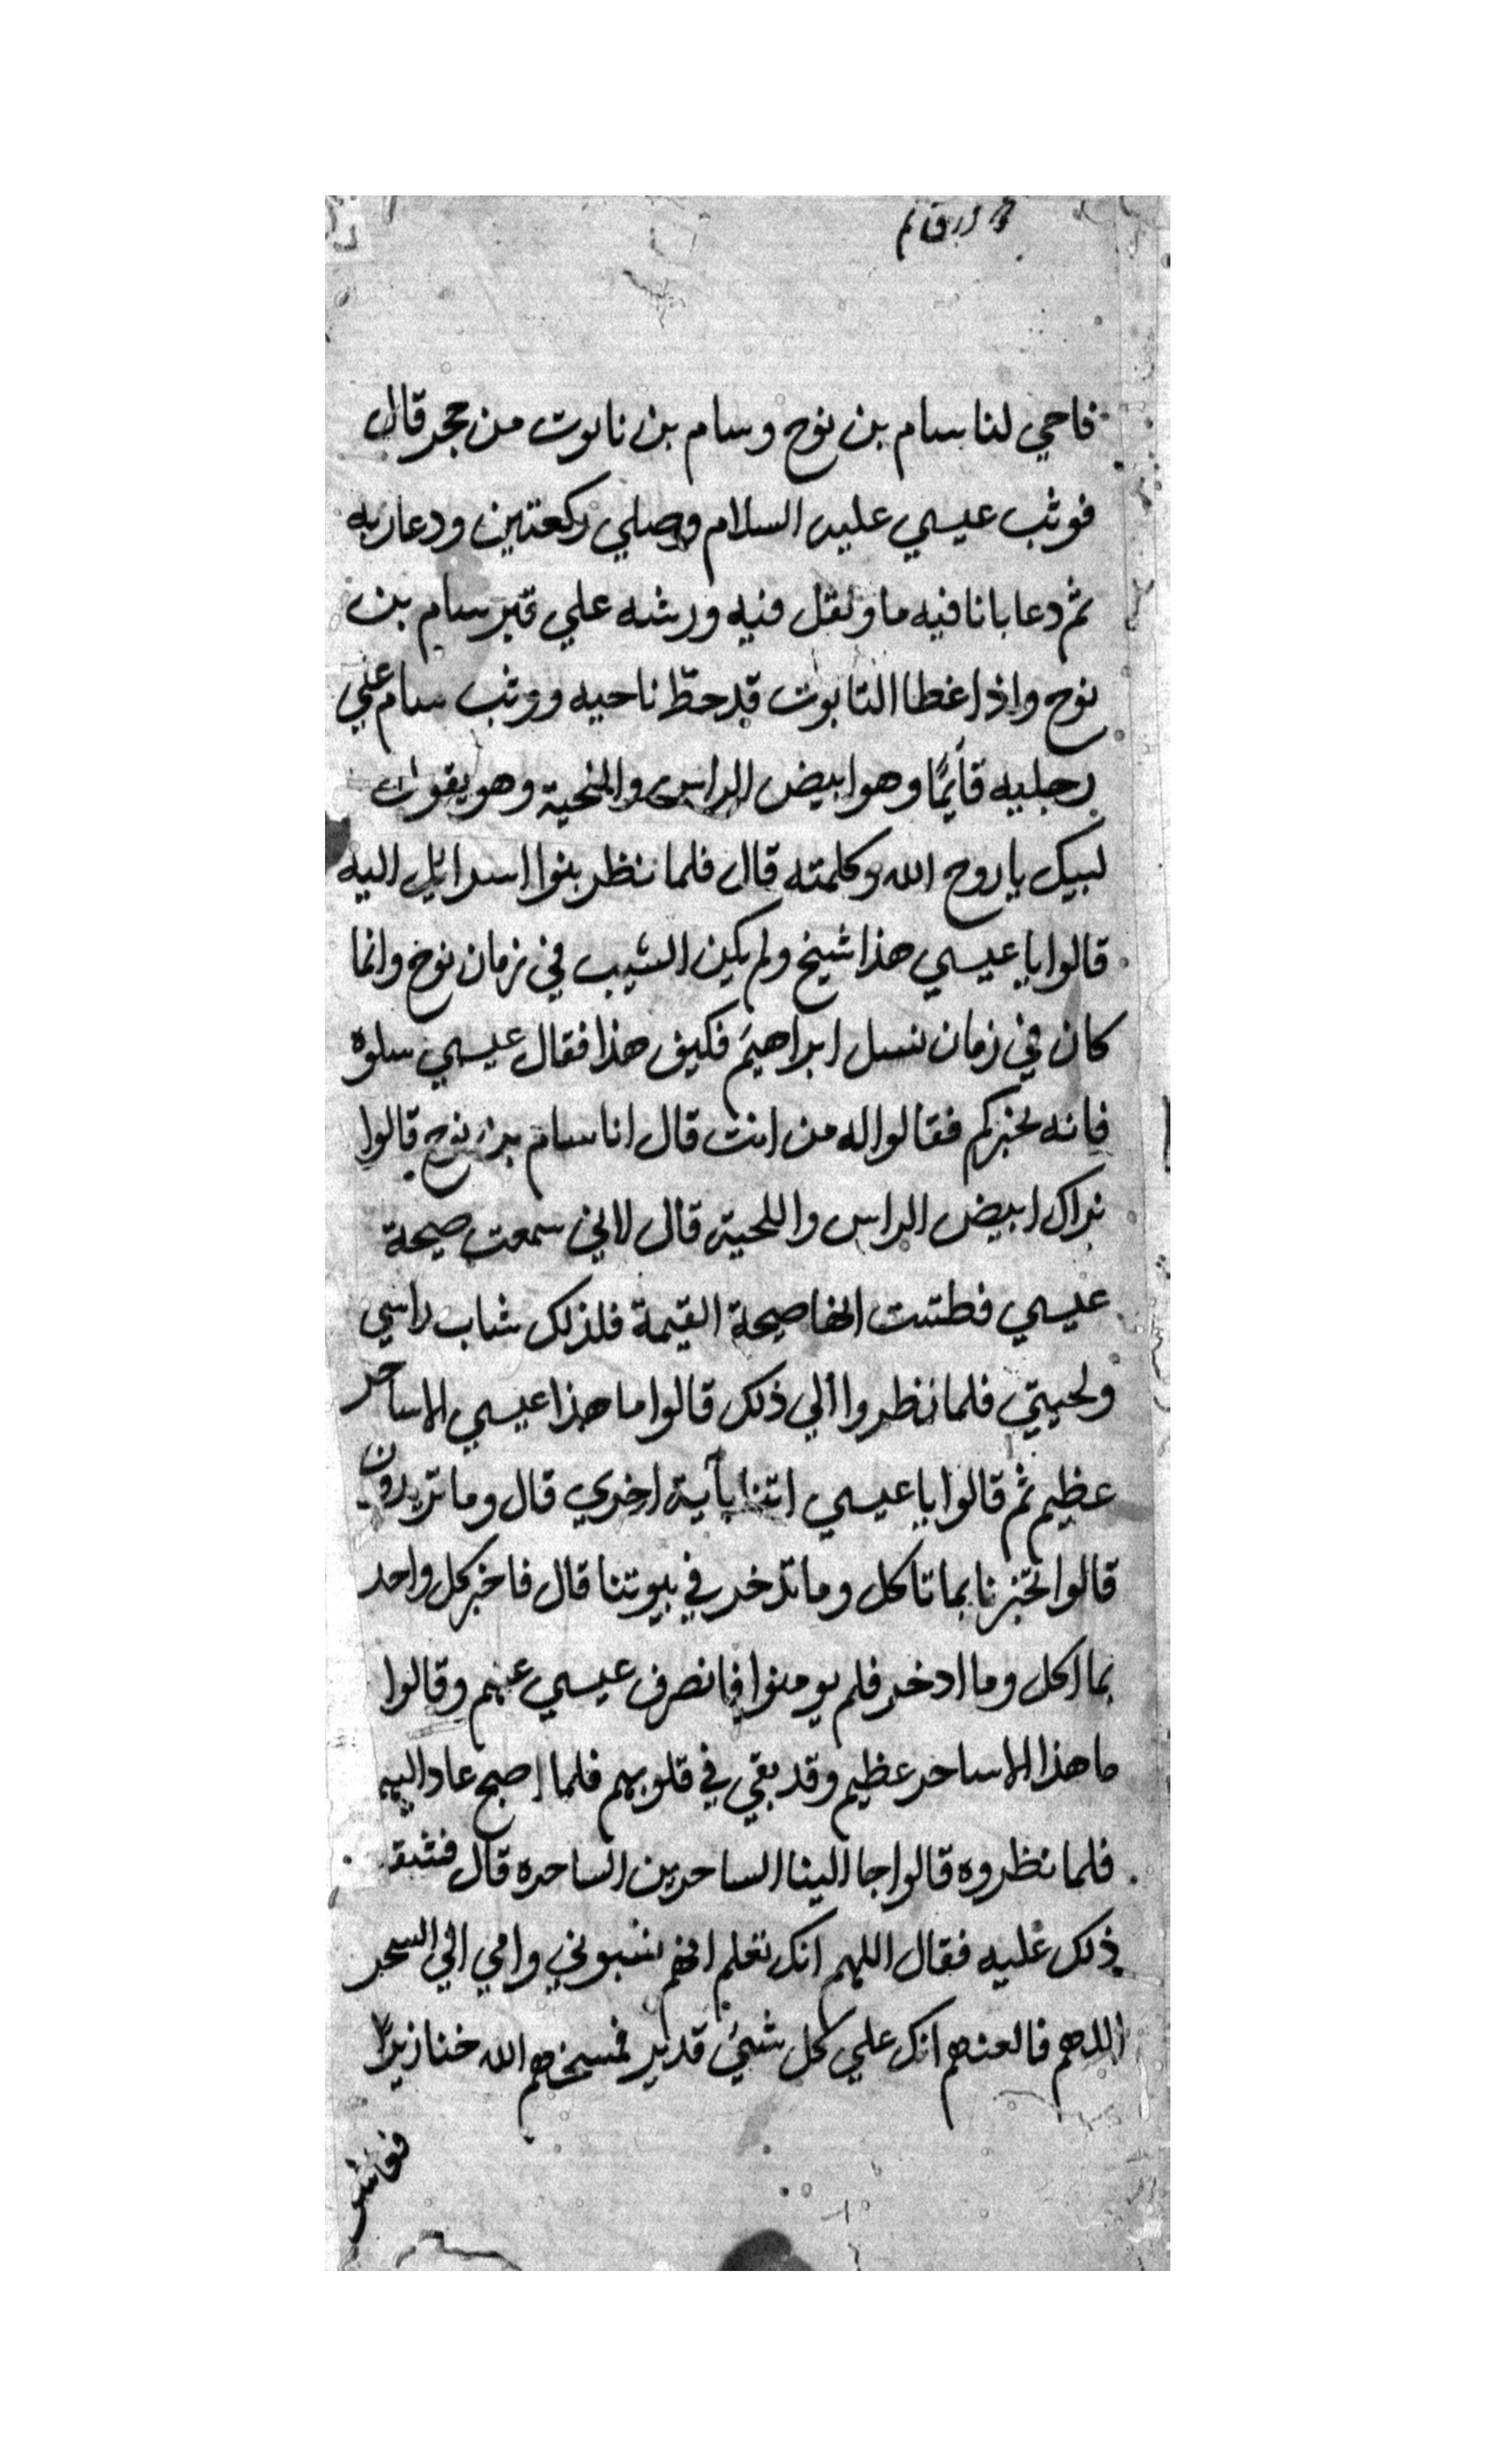 فاحي لنا سام بن نوح وسام بن نابوت من حجر قال
فوثب عيسي عليه السلام وصلي ركعتين ودعا ربه
ثم دعا بانا فيه ما وتفل فيه ورشه علي قبر سام بن
نوح واذا غطا التابوت قد حطّ ناحيه ووثب سام علي
رجليه قائمًا وهو ابيض الراس واللحية وهو يقول
لبيك يا روح الله وكلمته قال فلما نظر بنوا اسرائيل اليه
قالوا يا عيسي هذا شيخ ولم يكن الشيب في زمان نوح وانما
كان في زمان نسل ابراهيم فكيف هذا فقال عيسي سلوه
فانه يخبركم فقالوا له من انت قال انا سام بن نوح قالوا
نراك ابيض الراس واللحية قال لاني سمعت صيحة
عيسي فظننت انها صيحة القيمة فلذلك شاب راسي
ولحيتي فلما نظروا الي ذلك قالوا ما هذا عيسي الا ساحر
عظيم ثم قالوا يا عيسي اتنا بآية اخري قال وما تريدون
قالوا تخبرنا بما تاكل وما تدخر في بيوتنا قال فاخبر كل واحد
بما اكل وما ادخر فلم يومنوا فانصرف عيسي عنهم وقالوا
ما هذا الا ساحر عظيم وقد بقي في قلوبهم فلما اصبح عاد اليهم
فلما نظروه قالوا جا الينا الساحر بن الساحره قال فشق
ذلك عليه فقال اللهم انك تعلم انهم نسبوني وامي الي السحر
اللهم فالعنهم انك علي كل شيئ قدير فمسخهم الله خنازيرًا